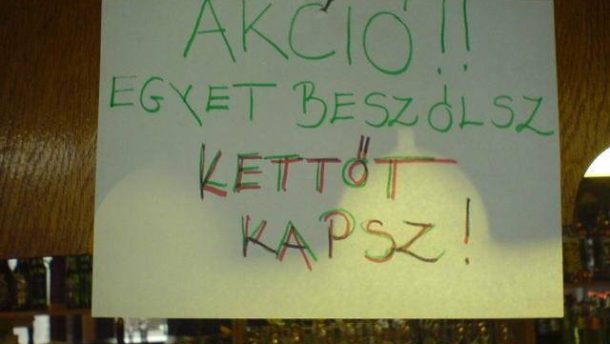 AKCIÓ!!
EGYET BESZÓLSZ
KETTŐT
KAPSZ!